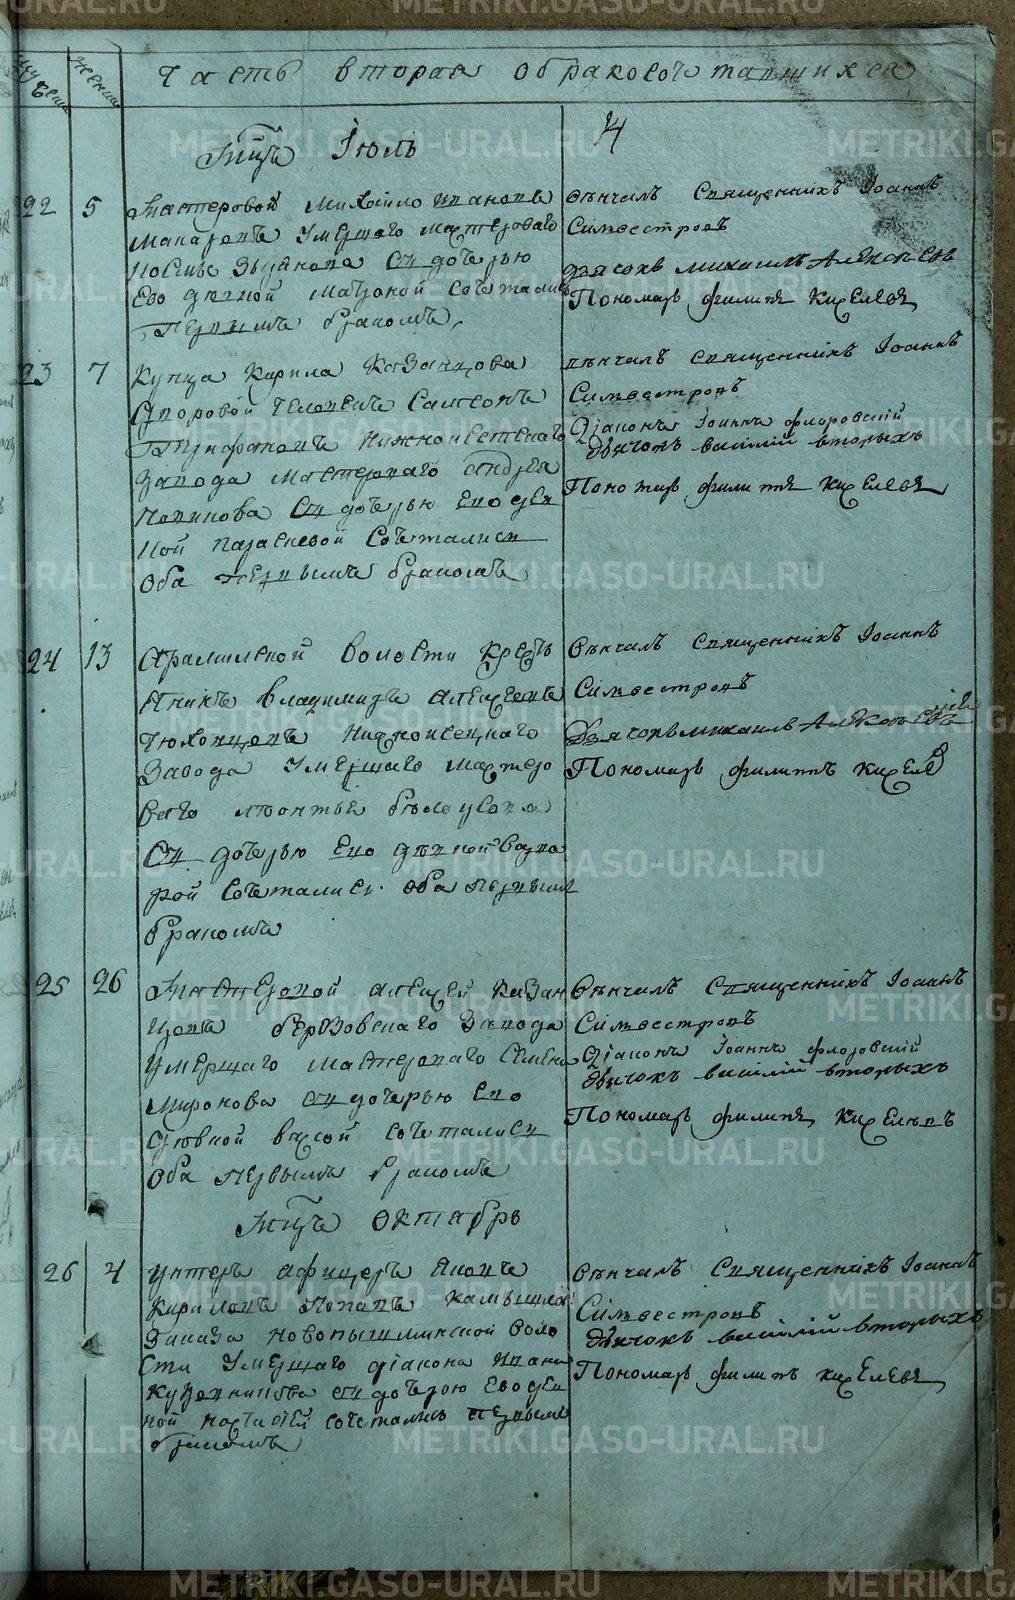 Часть вторая о бракосочтавшихся
14
Мцъ Июль
22 5 Мастеровой Михайло Ивановъ
Макаровъ умершаго мастероваго
съ дочерью
его девкой Матроной сочетались
первымъ бракомъ
Венчалъ священникъ Іоаннъ
Сильвестровъ
Дьячокъ Михаилъ Алексеевъ
Пономарь Филиппъ Киселевъ
23 7 Купца Кирила Казанцова
дворовой человекъ Самсонъ
Трифановъ Нижноисетскаго
завода мастероваго Андрея
Попинова съ дочерью его дев
кой Парасковой сочетались
оба первымъ бракомъ
венчалъ священникъ Іоаннъ
Сильвестровъ
Діаконъ Іоаннъ Флоровскій
Дьячокъ Василій Вторыхъ
Пономарь Филиппъ Киселевъ
24 13 Арамильской волости кресть
янинъ Владимиръ Алексеевъ
Тюхонцовъ Нижноисецкаго
завода умершаго мастеро
ваго Леонтья Белоусова
съ дочерью его девкой Варва
рой сочетались оба первым
бракомъ
Венчалъ священникъ Іоаннъ
Сильвестровъ
Дьячокъ Михаилъ Алексеевъ
Пономарь Филиппъ Киселев
25 26 Мастеровой Алексей Казан
цовъ Берёзовскаго завода
умершаго мастероваго Семена
Миронова съ дочерью его
девкой Васой сочетались
оба первымъ бракомъ
Венчалъ священникъ Іоаннъ
Сильвестровъ
Діаконъ Іоаннъ Флоровскій
Дьячокъ Василій Вторыхъ
Пономарь Филиппъ Киселевъ
Мцъ Октябрь
26 4 Унтеръ афицеръ Яковъ
Кириловъ Поповъ Камышлов
заказа Новопышминской воло
сти умершаго діакона Ивана
съ дочерью его дев
кой сочетались первымъ
бракомъ
Венчалъ священникъ Іоаннъ
Сильвестровъ
Дьячокъ Василій Вторыхъ
Пономарь Филипъ Киселевъ
METRIKI.GASO-URAL.RU